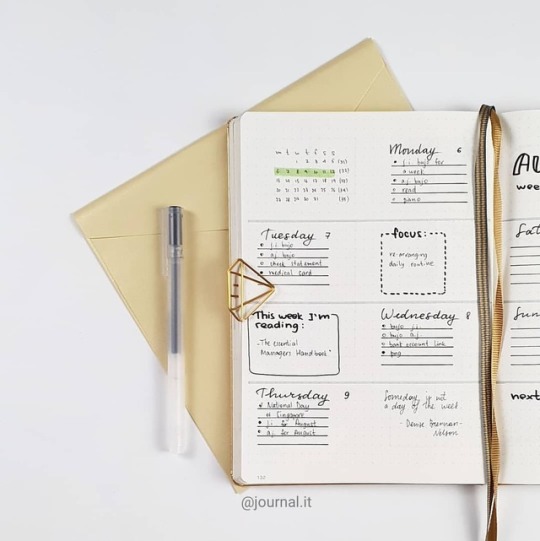 m t w t f s s
1 2 3 4 5 (31)
6 7 8 9 10 11 12 (32)
13 14 15 16 17 18 19 (33)
20 21 22 23 24 25 26 (34)
27 28 29 30 31 (35)
Monday 6
j.i. bujo for
a week
a.j. bujo
read
Tuesday 7
j.i bujo
a.j. bujo
check statement
medical card
focus:
re-arranging
daily routine
This week I'm
reading:
-The essential
Managers Handbook"
Wednesday 8
bujo j.i.
bujo a.j.
bank account link
Thursday 9
National Day
Singapore
j.i for August
a.j. for August
Someday is not
a day of the week
- Denise Brennan-
Nelson
AU
wee
Sat
Sun
next
@journal.it